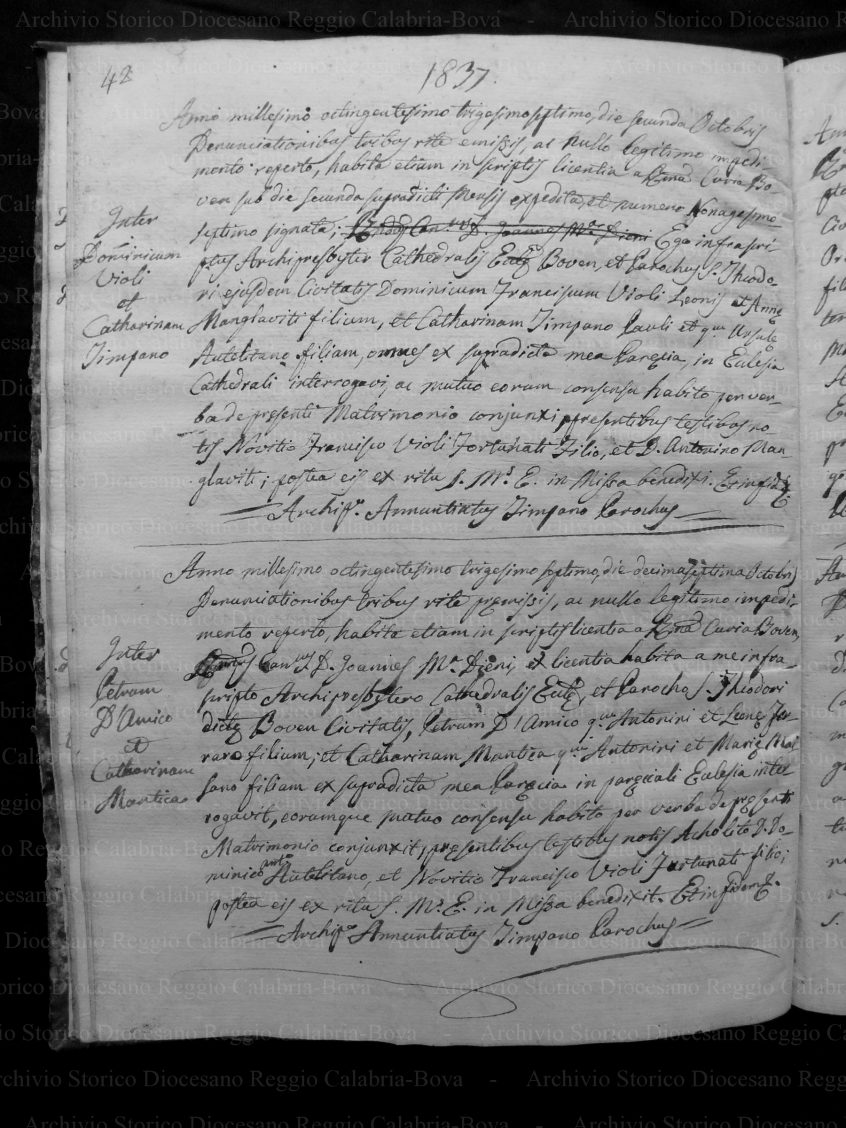 42
1837.
Anno millesimo octingentesimo trigesimo septimo, die secunda Octobris
Denunciationibus tribus rite emissis, ac nullo legitimo impedi
mento reperto, habita etiam in scriptis licentia a Rma Curia Bo
ven sub die secunda supradicti Mensis expedita, et numero Nonagesimo
septimo signata; Rndus Can.us D. Joannes M.a Dieni Ego infrascri
ptus Archipresbyter Cathedralis Eccle Boven, et Parochus S. Theodo-
ri ejusdem Civitatis Dominicum Franciscum Violi Leonis et Anne
Manglaviti filium, et Catharinam Timpano Pauli et qm Ursule
Autelitano filiam, omnes ex supradicta mea Parecia, in Eclesia
Cathedrali interrogavi, ac mutuo eorum consensu habito per ver-
ba de presenti Matrimonio conjunxi, presentibus testibus no
tis Novitio Francisco Violi Fortunati Filio, et D. Antonino Man
glaviti; postea eis ex ritu S. M.s E. in Missa benedixi. Et in fid.
Archip.r Annuntiatus Timpano Parochus
Inter
Dominicum
Violi
et
Catharinam
Timpano
Anno millesimo octingentesimo trigesimo septimo, die decima septima Octobris
Denunciationibus tribus rite premissis, ac nullo legitimo impedi-
mento reperto, habita etiam in scriptis licentia a Rma Curia Boven,
Rndus Can.us D. Joannes M.a Dieni, ex licentia habita a me infra-
scripto Archipresbytero Cathedralis Eccle, et Parocho S. Theodori
dicte Boven Civitatis, Petrum D'Amico qm Antonini et Leone Fer-
raro filium, et Catharinam Mantica qm Antonini et Marie Moi
sano filiam ex supradicta mea Parecia in pareciali Eclesia inter
rogavit, eorumque mutuo consensu habito per verba de presenti
Matrimonio conjunxit, presentibus testibus notis Acholito D. Do-
minico Ant.o Autelitano, et Novitio Francisco Violi Fortunati filio;
postea eis ex ritu S. M.s E. in Missa benedixit. Et in fidem
Archip.r Annuntiatus Timpano Parochus
Inter
Petrum
D'Amico
et
Catharinam
Mantica
Archivio Storico Diocesano Reggio Calabria-Bova